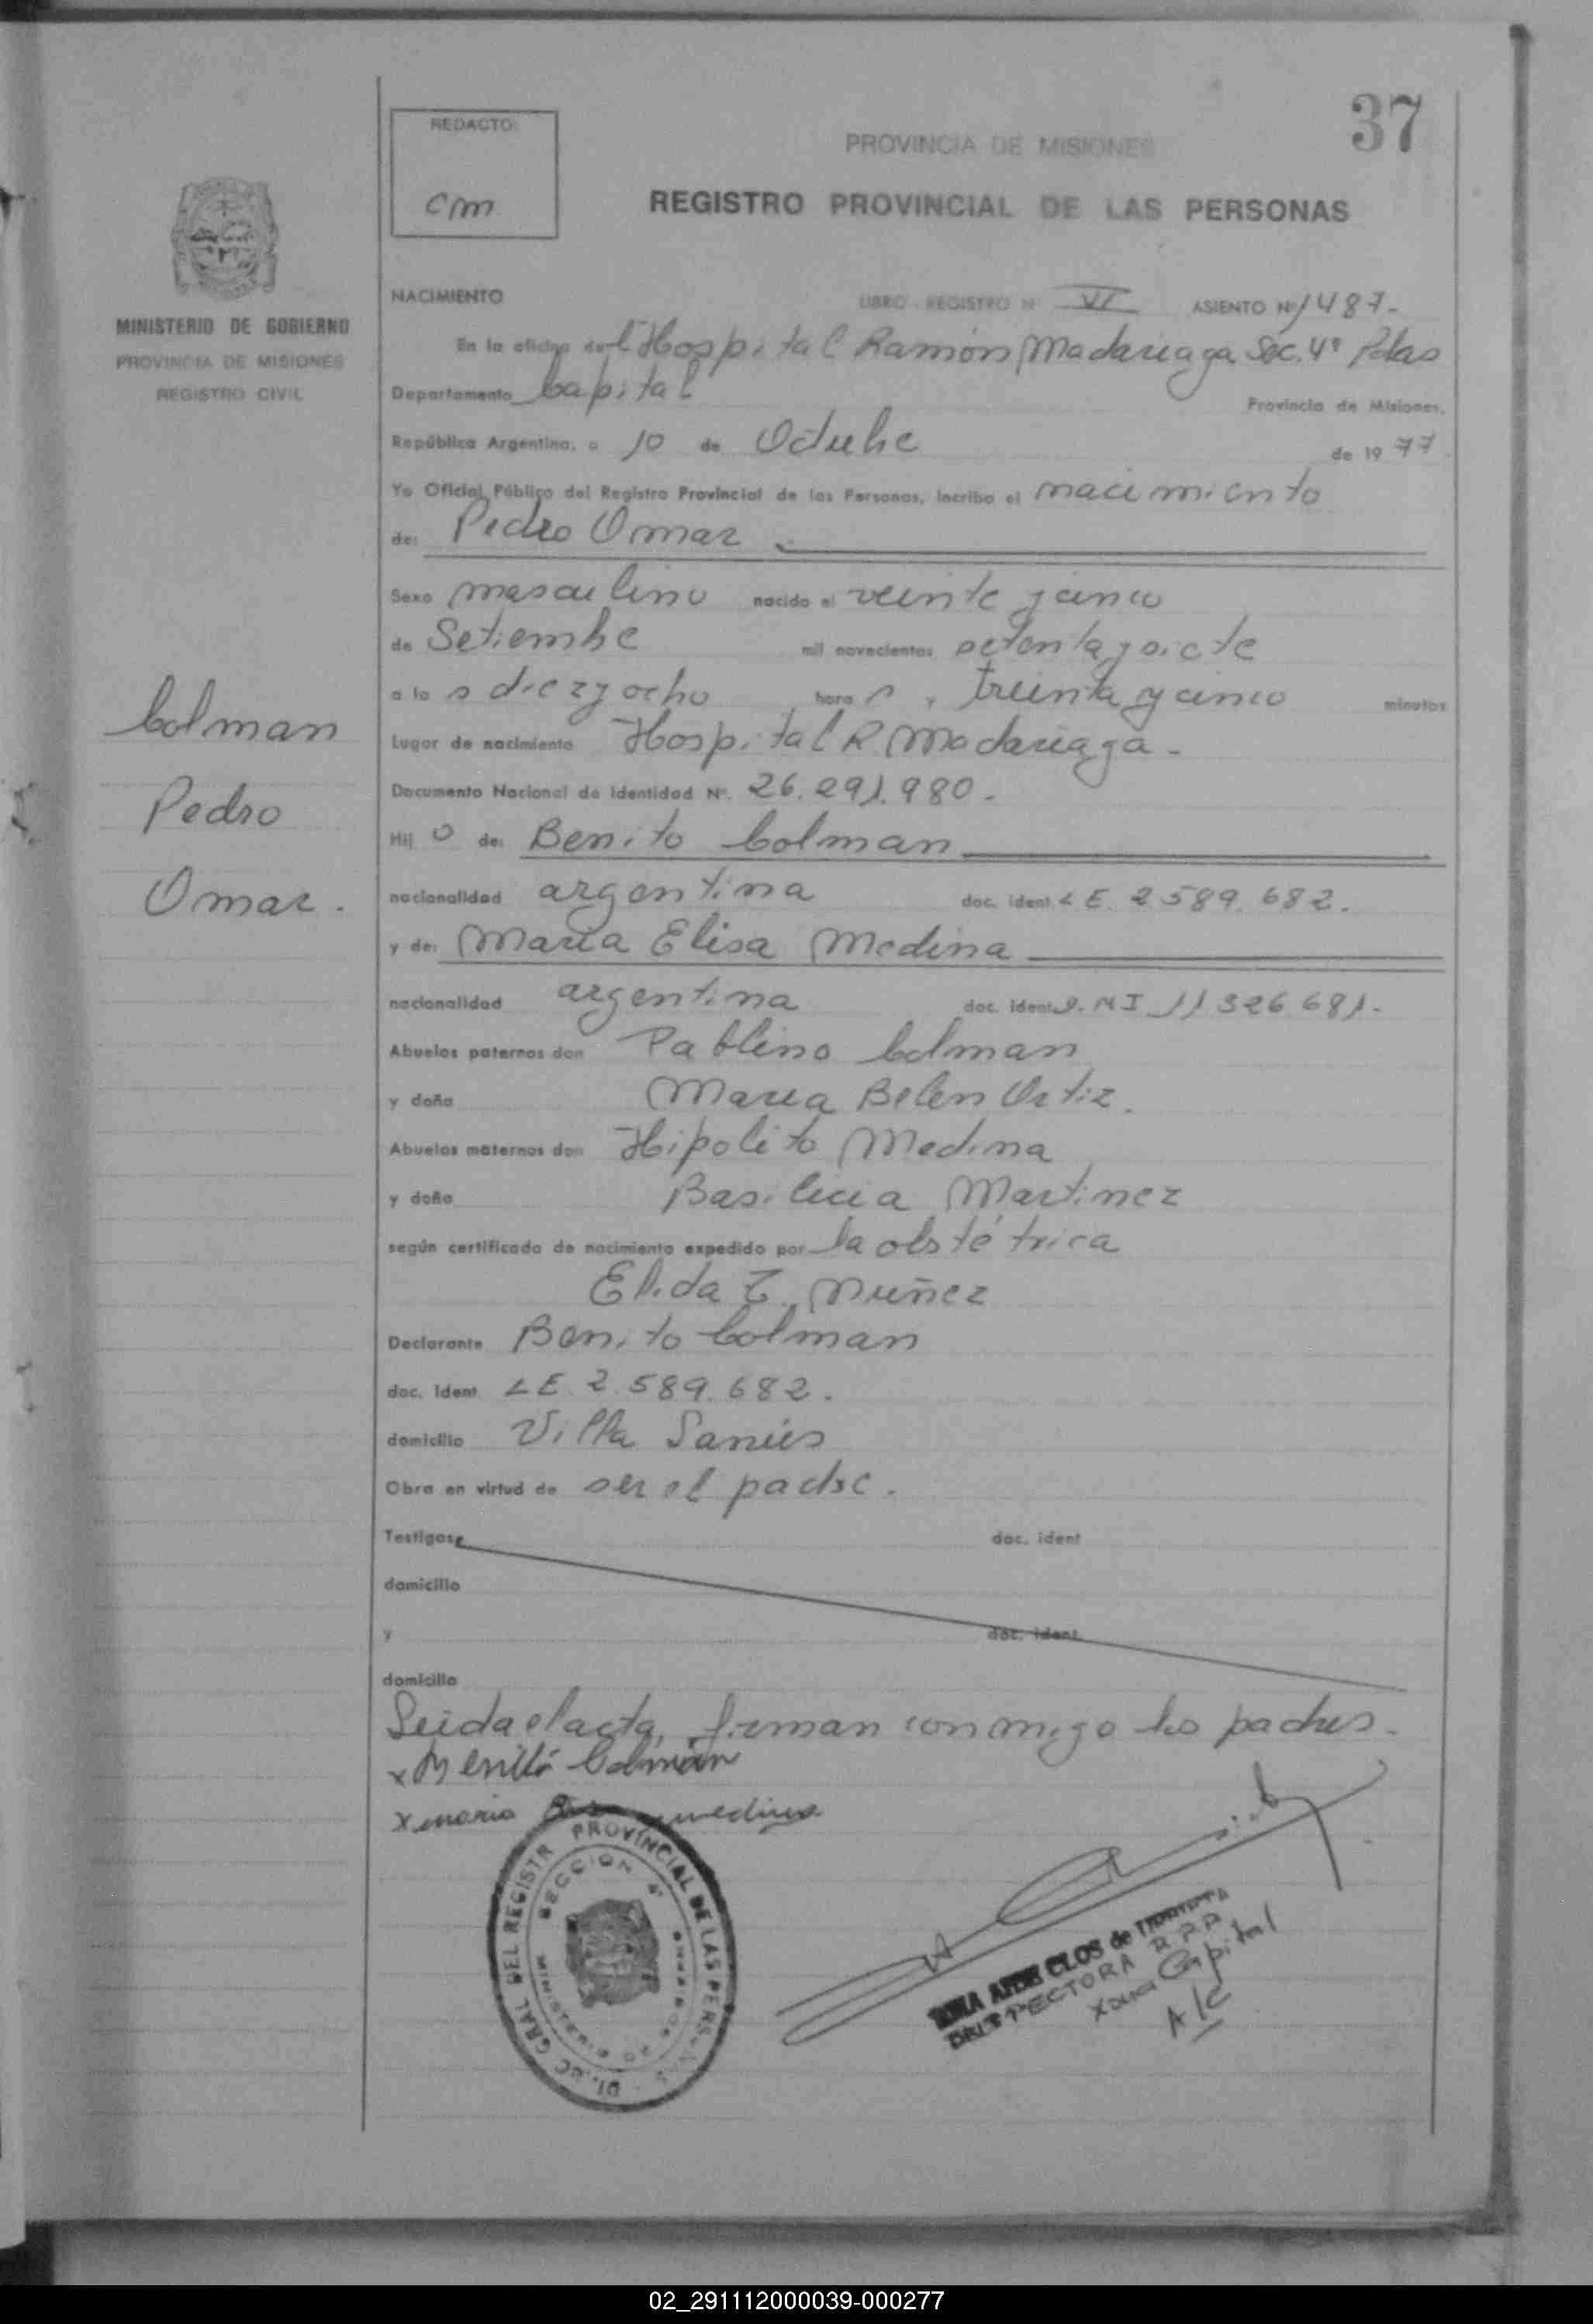 37
REDACTO:
cm
PROVINCIA DE MISIONES
REGISTRO PROVINCIAL DE LAS PERSONAS
MINISTERIO DE GOBIERNO
PROVINCIA DE MISIONES
REGISTRO CIVIL
NACIMIENTO LIBRO - REGISTRO Nº VI ASIENTO Nº 1487-
En la oficina del Hospital Ramón Madariaga Sec. 4º Pdas
Departamento Capital Provincia de Misiones,
República Argentina, a 10 de Octubre de 1977
Yo Oficial Público del Registro Provincial de las Personas, inscribo el nacimiento
de: Pedro Omar
Sexo masculino nacido el veinte y cinco
de Setiembre mil novecientos setenta y siete
a las diez y ocho horas, treinta y cinco minutos
Lugar de nacimiento Hospital R. Madariaga -
Documento Nacional de Identidad Nº. 26.291.980-
Hijo de: Benito Colman
nacionalidad argentina doc. ident LE 2589.682.
y de: Maria Elisa Medina
nacionalidad argentina doc. ident D.N I 11326681-
Abuelos paternos don Pablino Colman
y doña Maria Belen Ortiz.
Abuelos maternos don Hipolito Medina
y doña Basilicia Martinez
según certificado de nacimiento expedido por la obstétrica
Elida T. Nuñez
Declarante Benito Colman
doc. ident LE. 2.589.682.
domicilio Villa Sarries
Obra en virtud de ser el padre.
Testigos: doc. ident
domicilio
y doc. ident
domicilio
Leida el acta, firman conmigo los padres.
x Benito Colman
x maria medina
Colman
Pedro
Omar.
DIREC GRAL DEL REGISTR PROVINCIAL DE LAS PERSONAS
SECCION 4ª
CLOS de
INSPECTORA R.P.P
Zona Capital
A/C
02_291112000039-000277